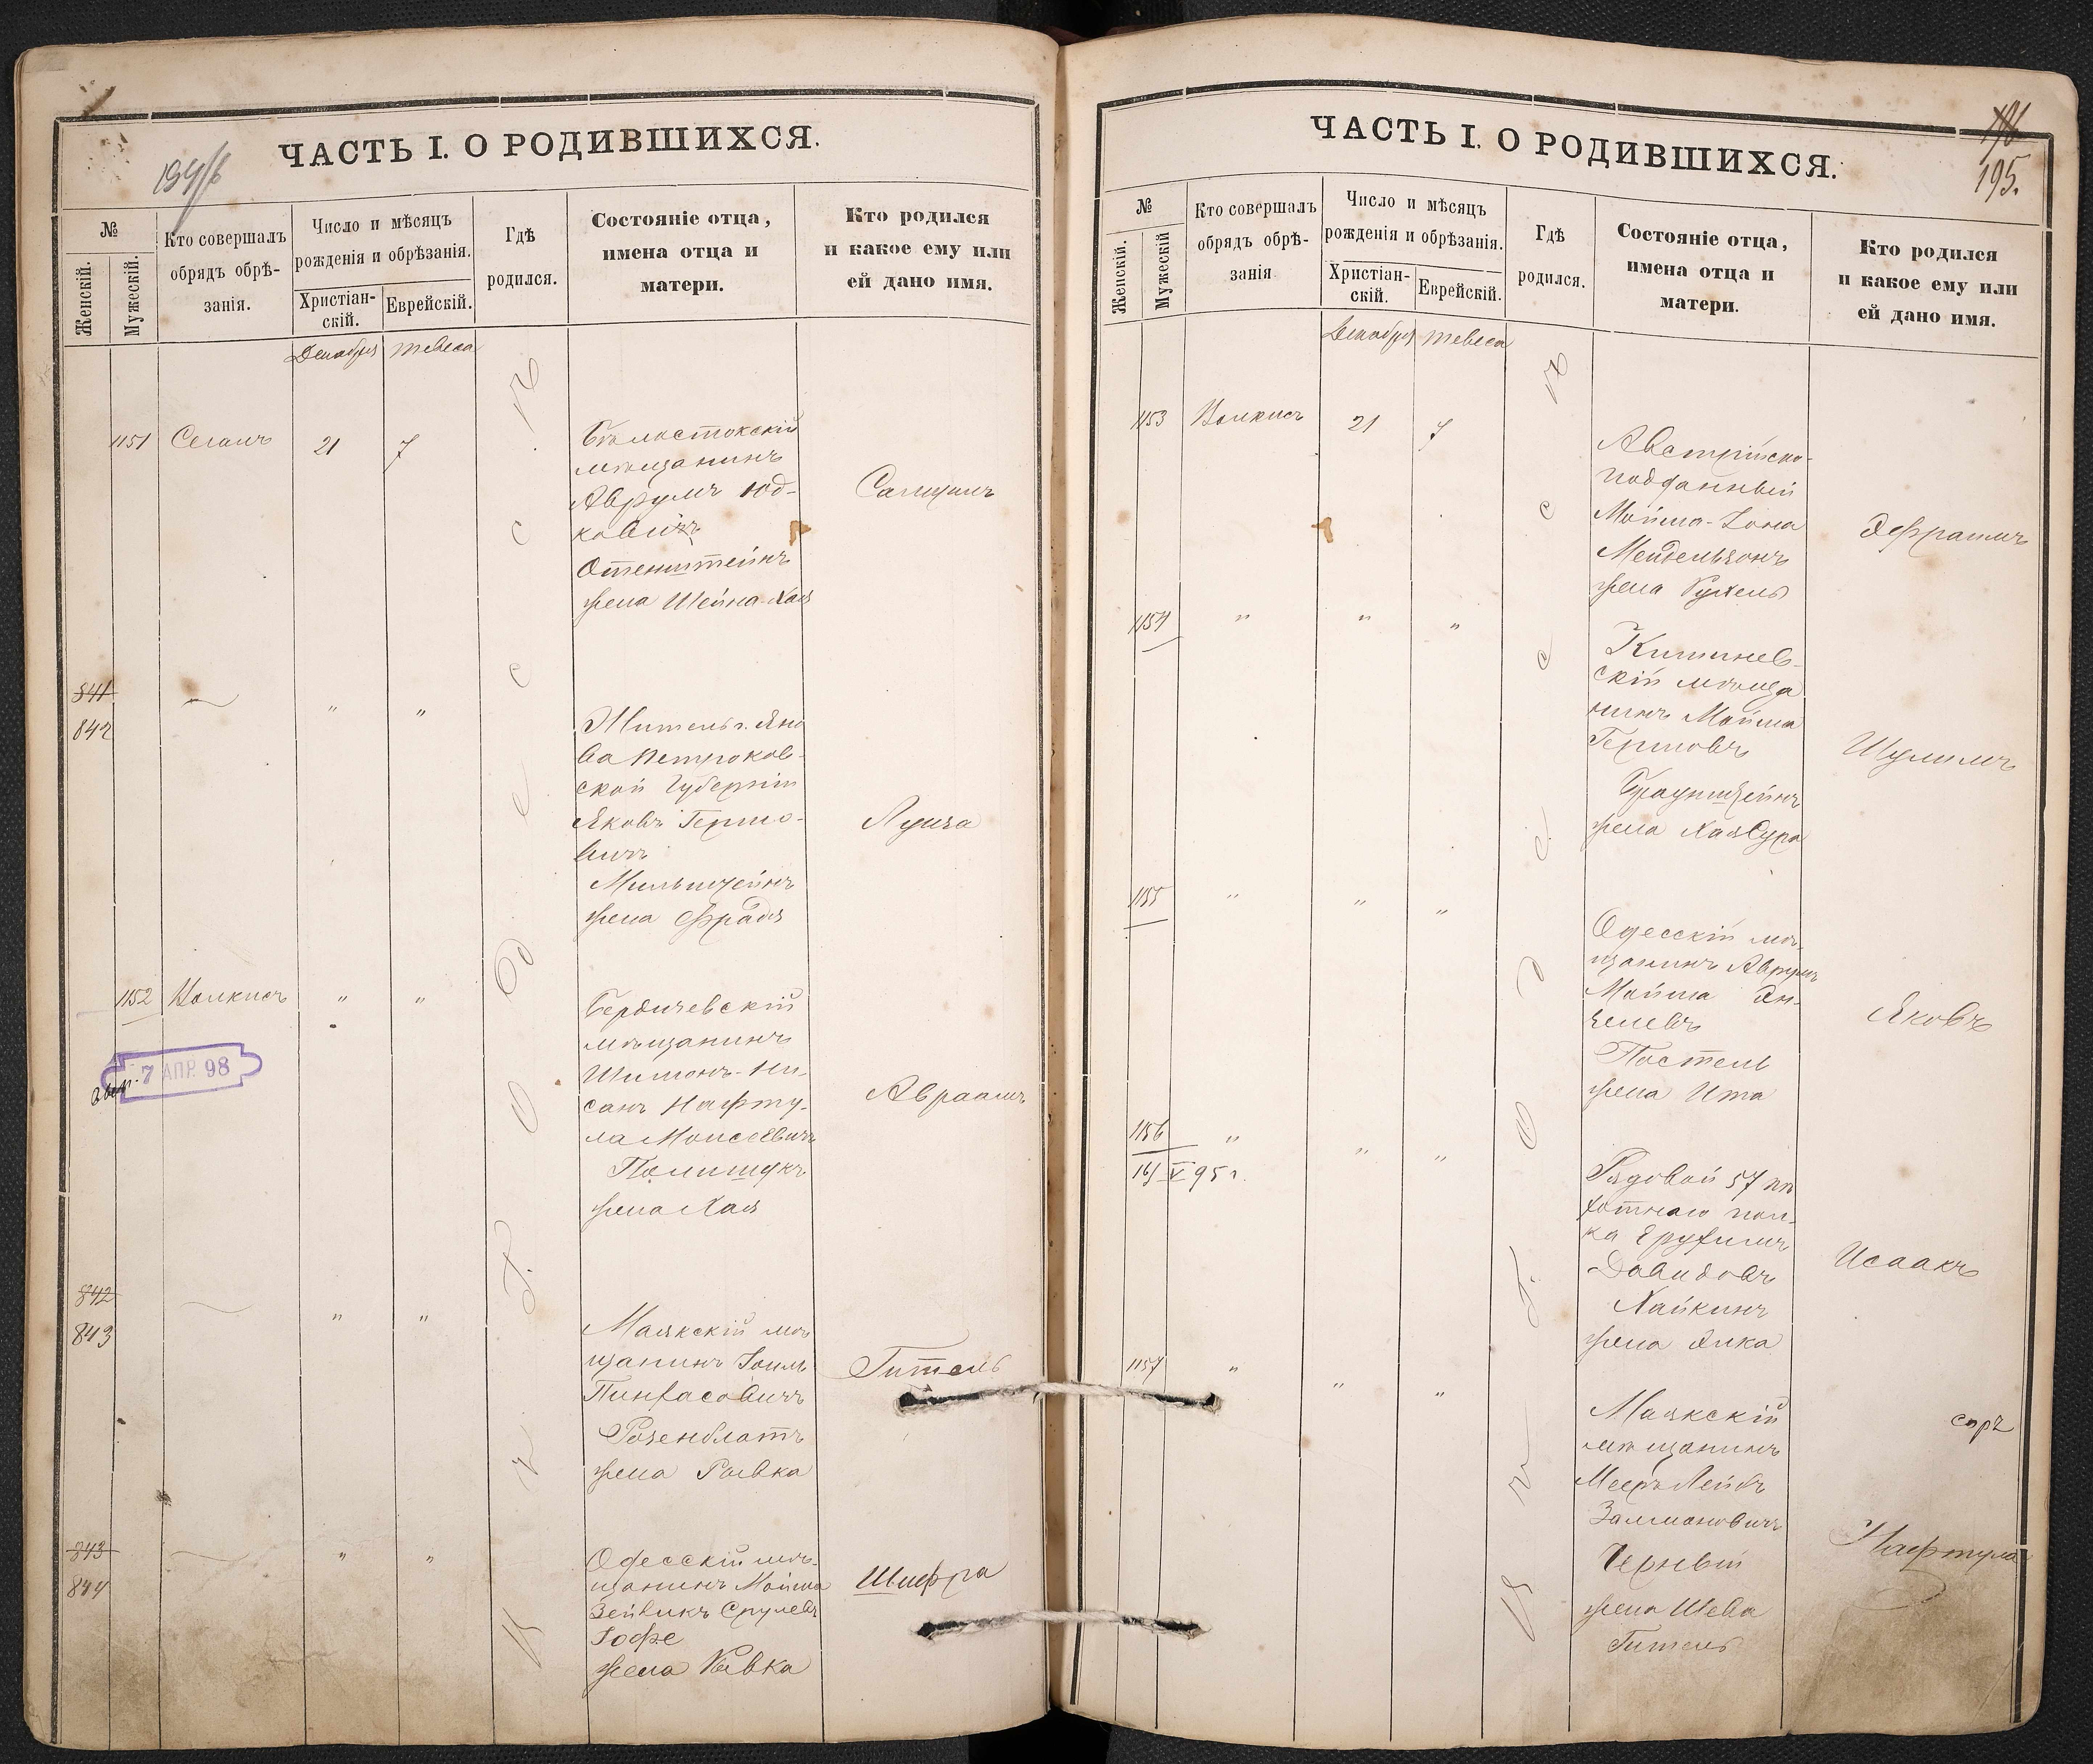 ЧАСТЬ I. О РОДИВШИХСЯ.
№
Женскій.
Мужескій.
Кто совершалъ
обрядъ обрѣ-
занія.
Число и мѣсяцъ
рожденія и обрѣзанія.
Христіан-
скій.
Еврейскій.
Гдѣ
родился.
Состояніе отца,
имена отца и
матери.
Кто родился
и какое ему или
ей дано имя.
Декабря Тевеса
1151 Сегалъ 21 7
Бѣлостокскій
мѣщанинъ
Аврумъ Юд-
ковичъ
Отенштейнъ
жена Шейна-Хая
841
842
" "
Житель г. Яно
ва Петроков-
ской Губерніи
Яковъ Гершо-
вичъ
Мильштейнъ
жена Фрадя
Луиза
1152 " "
Бердичевскій
мѣщанинъ
Шимонъ-Ни-
санъ Нафту-
ла Моисеевичъ
Полищукъ
жена Хая
Авраамъ
7 АПР 98
842
843
" "
Маякскій мѣ
щанинъ Іоиль
Пинхасовичъ
Розенблатъ
жена Ривка
Гитель
843
844
" "
Одесскій мѣ-
щанинъ Мойша
Зейликъ Срулевъ
Іофе
жена Ривка
Шифра
В г. О д е с с ѣ
ЧАСТЬ I. О РОДИВШИХСЯ.
195.
№
Женскій.
Мужескій
Кто совершалъ
обрядъ обрѣ-
занія
Число и мѣсяцъ
рожденія и обрѣзанія.
Христіан-
скій.
Еврейскій.
Гдѣ
родился.
Состояніе отца,
имена отца и
матери.
Кто родился
и какое ему или
ей дано имя.
Декабря Тевеса
1153 21 7
Австрійско-
подданный
Мойша-Іона
Мендельзонъ
жена Рухель
Эфраимъ
1154 " " "
Кишинев-
скій мѣща
нинъ Мойша
Гершовъ
Браунштейнъ
жена Хая Сура
Шулимъ
1155 " " "
Одесскій мѣ-
щанинъ Аврумъ
Мойша Ан-
челевъ
Постель
жена Ита
Яковъ
1156 " " "
16/V 95 г.
Рядовой 57 пѣ
хотнаго пол-
ка Ерухимъ
Давидовъ
Хайкинъ
жена Элка
Исаакъ
1157 " " "
Маякскій
мѣщанинъ
Мееръ Лейбъ
Залмановичъ
Черный
жена Шева
Гитель
Нафтула
В г. О д е с с ѣ